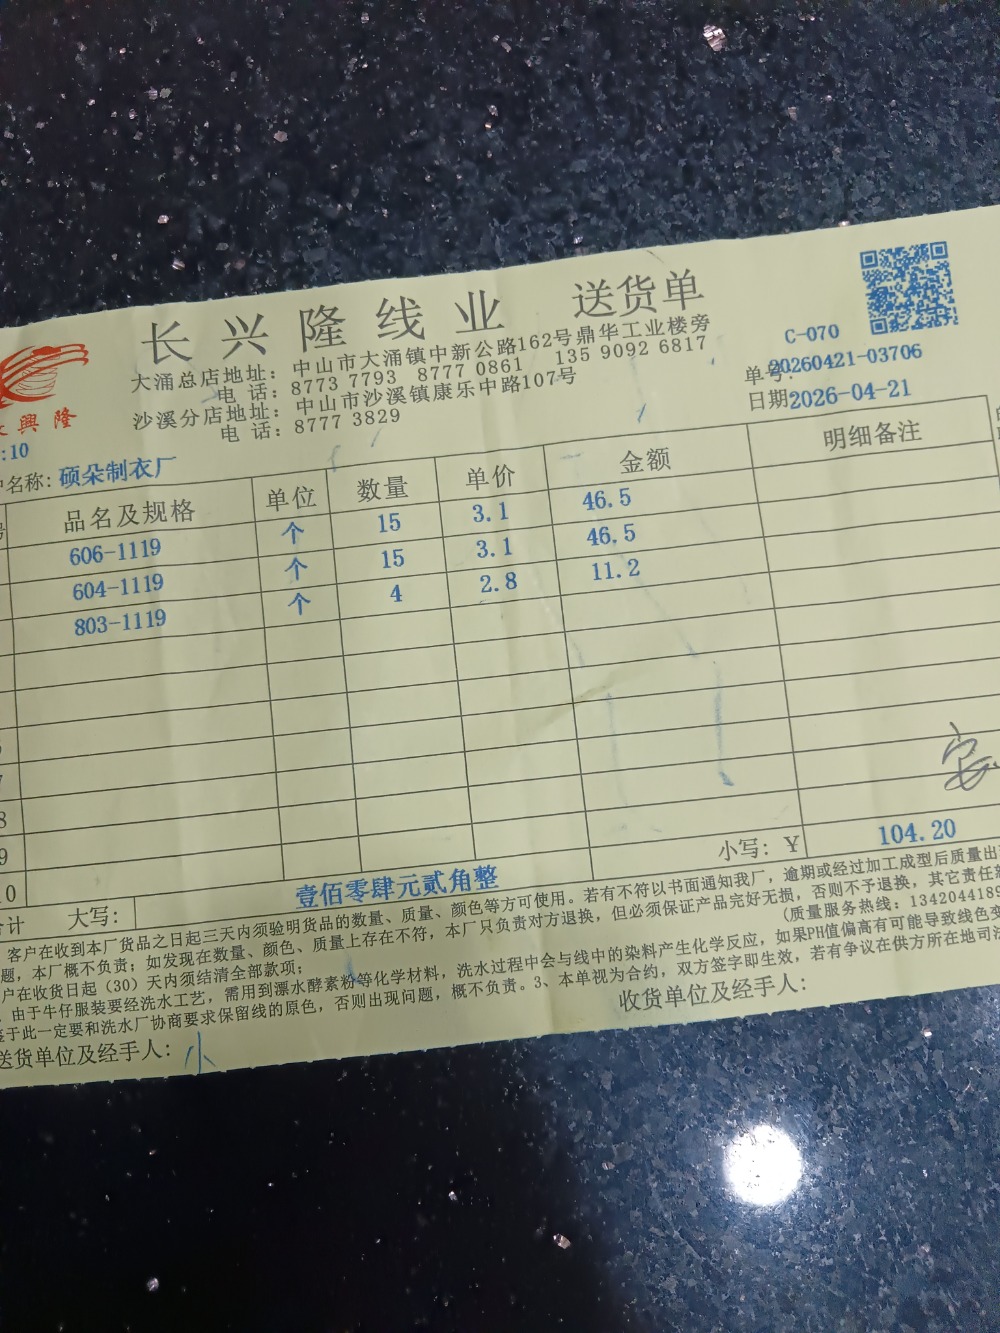 长兴隆线业 送货单
大涌总店地址：中山市大涌镇中新公路162号鼎华工业楼旁
电 话：8773 7793 8777 0861 135 9092 6817
沙溪分店地址：中山市沙溪镇康乐中路107号
电 话：8777 3829
C-070
单号:20260421-03706
日期2026-04-21
興隆
:10
名称: 硕朵制衣厂
品名及规格 单位 数量 单价 金额 明细备注
606-1119 个 15 3.1 46.5
604-1119 个 15 3.1 46.5
803-1119 个 4 2.8 11.2
8
9
10
小写: ￥ 104.20
计 大写: 壹佰零肆元贰角整
客户在收到本厂货品之日起三天内须验明货品的数量、质量、颜色等方可使用。若有不符以书面通知我厂，逾期或经过加工成型后质量出
题，本厂概不负责；如发现在数量、颜色、质量上存在不符，本厂只负责对方退换，但必须保证产品完好无损，否则不予退换，其它责任
户在收货日起（30）天内须结清全部款项；
(质量服务热线: 1342044189
由于牛仔服装要经洗水工艺，需用到漂水酵素粉等化学材料，洗水过程中会与线中的染料产生化学反应，如果PH值偏高有可能导致线色变
鉴于此一定要和洗水厂协商要求保留线的原色，否则出现问题，概不负责。3、本单视为合约，双方签字即生效，若有争议在供方所在地司法
送货单位及经手人: 小
收货单位及经手人: